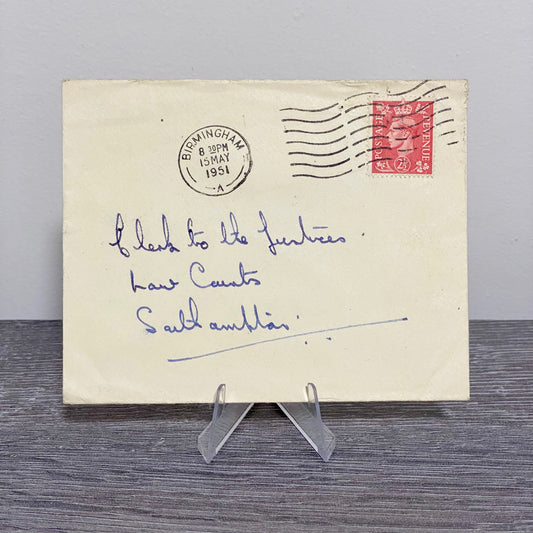 BIRMINGHAM
8 30PM
15 MAY
1951
A
POSTAGE
REVENUE
2½
Clerk to the Justices
Law Courts
Southampton